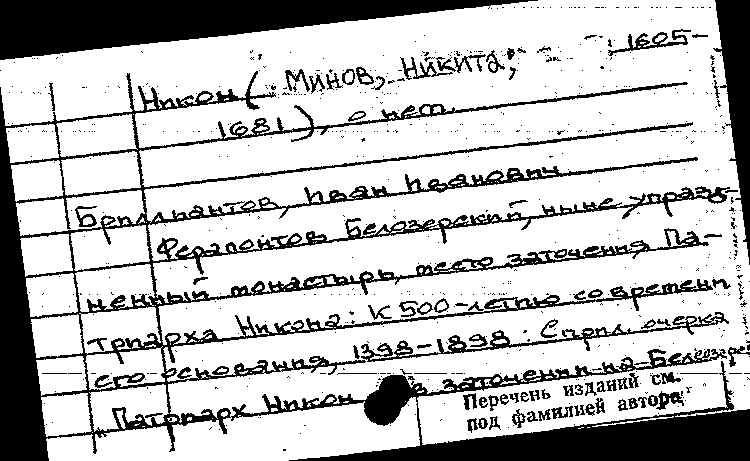 Никон (Минов, Никита; 1605-
1681), о нем.
Бриллиантов, Иван Иванович.
Ферапонтов Белозерский, ныне упразд-
ненный монастырь, место заточения Па-
триарха Никона: К 500-летию со времени
его основания, 1398-1898: С прил. очерка
"Патриарх Никон в заточении на Белоозере
Перечень изданий см.
под фамилией автора